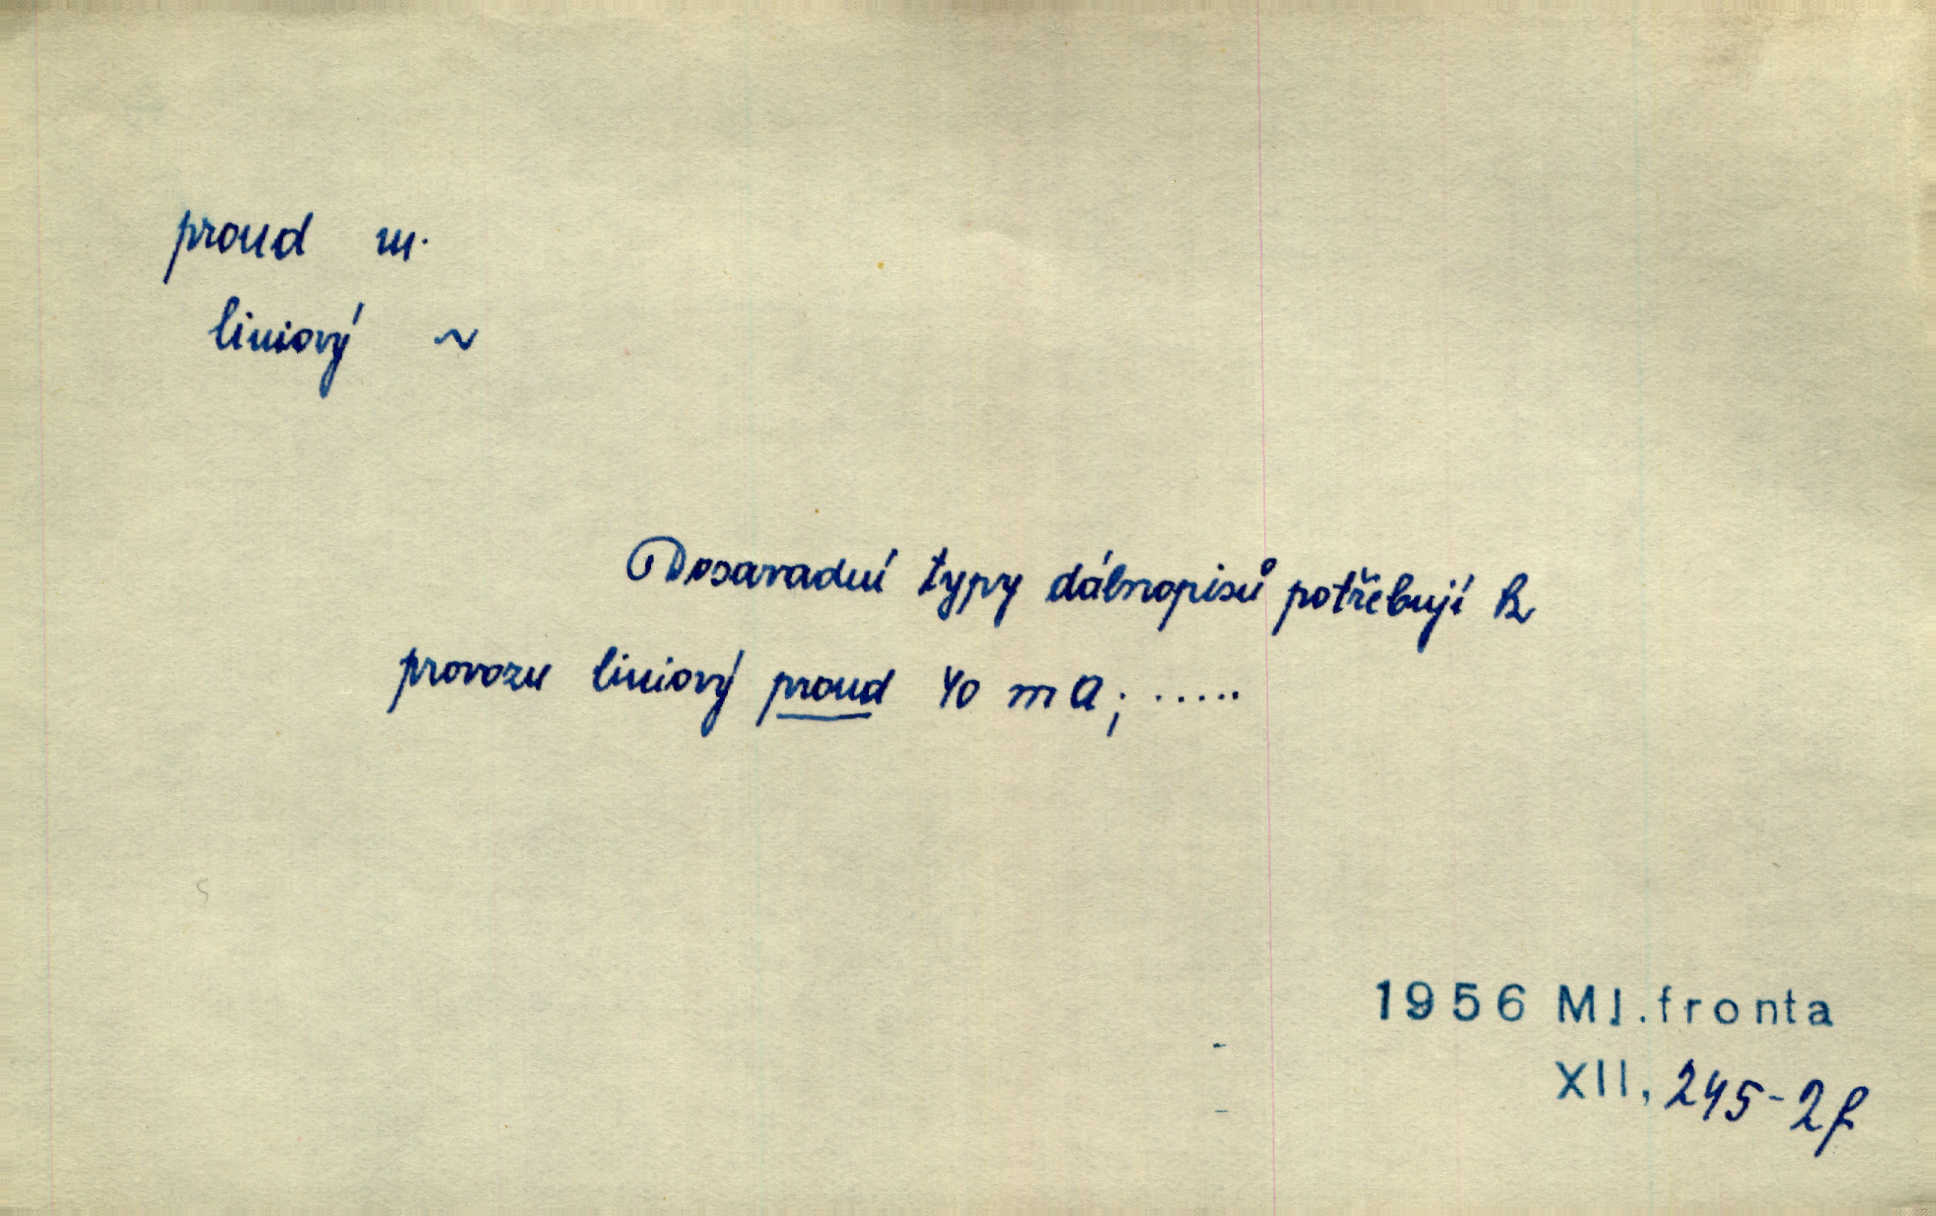 proud m.
liniový ~
Dosavadní typy dálnopisů potřebují k
provozu liniový proud 40 mA; .....
1956 Ml.fronta
XII, 245-2f